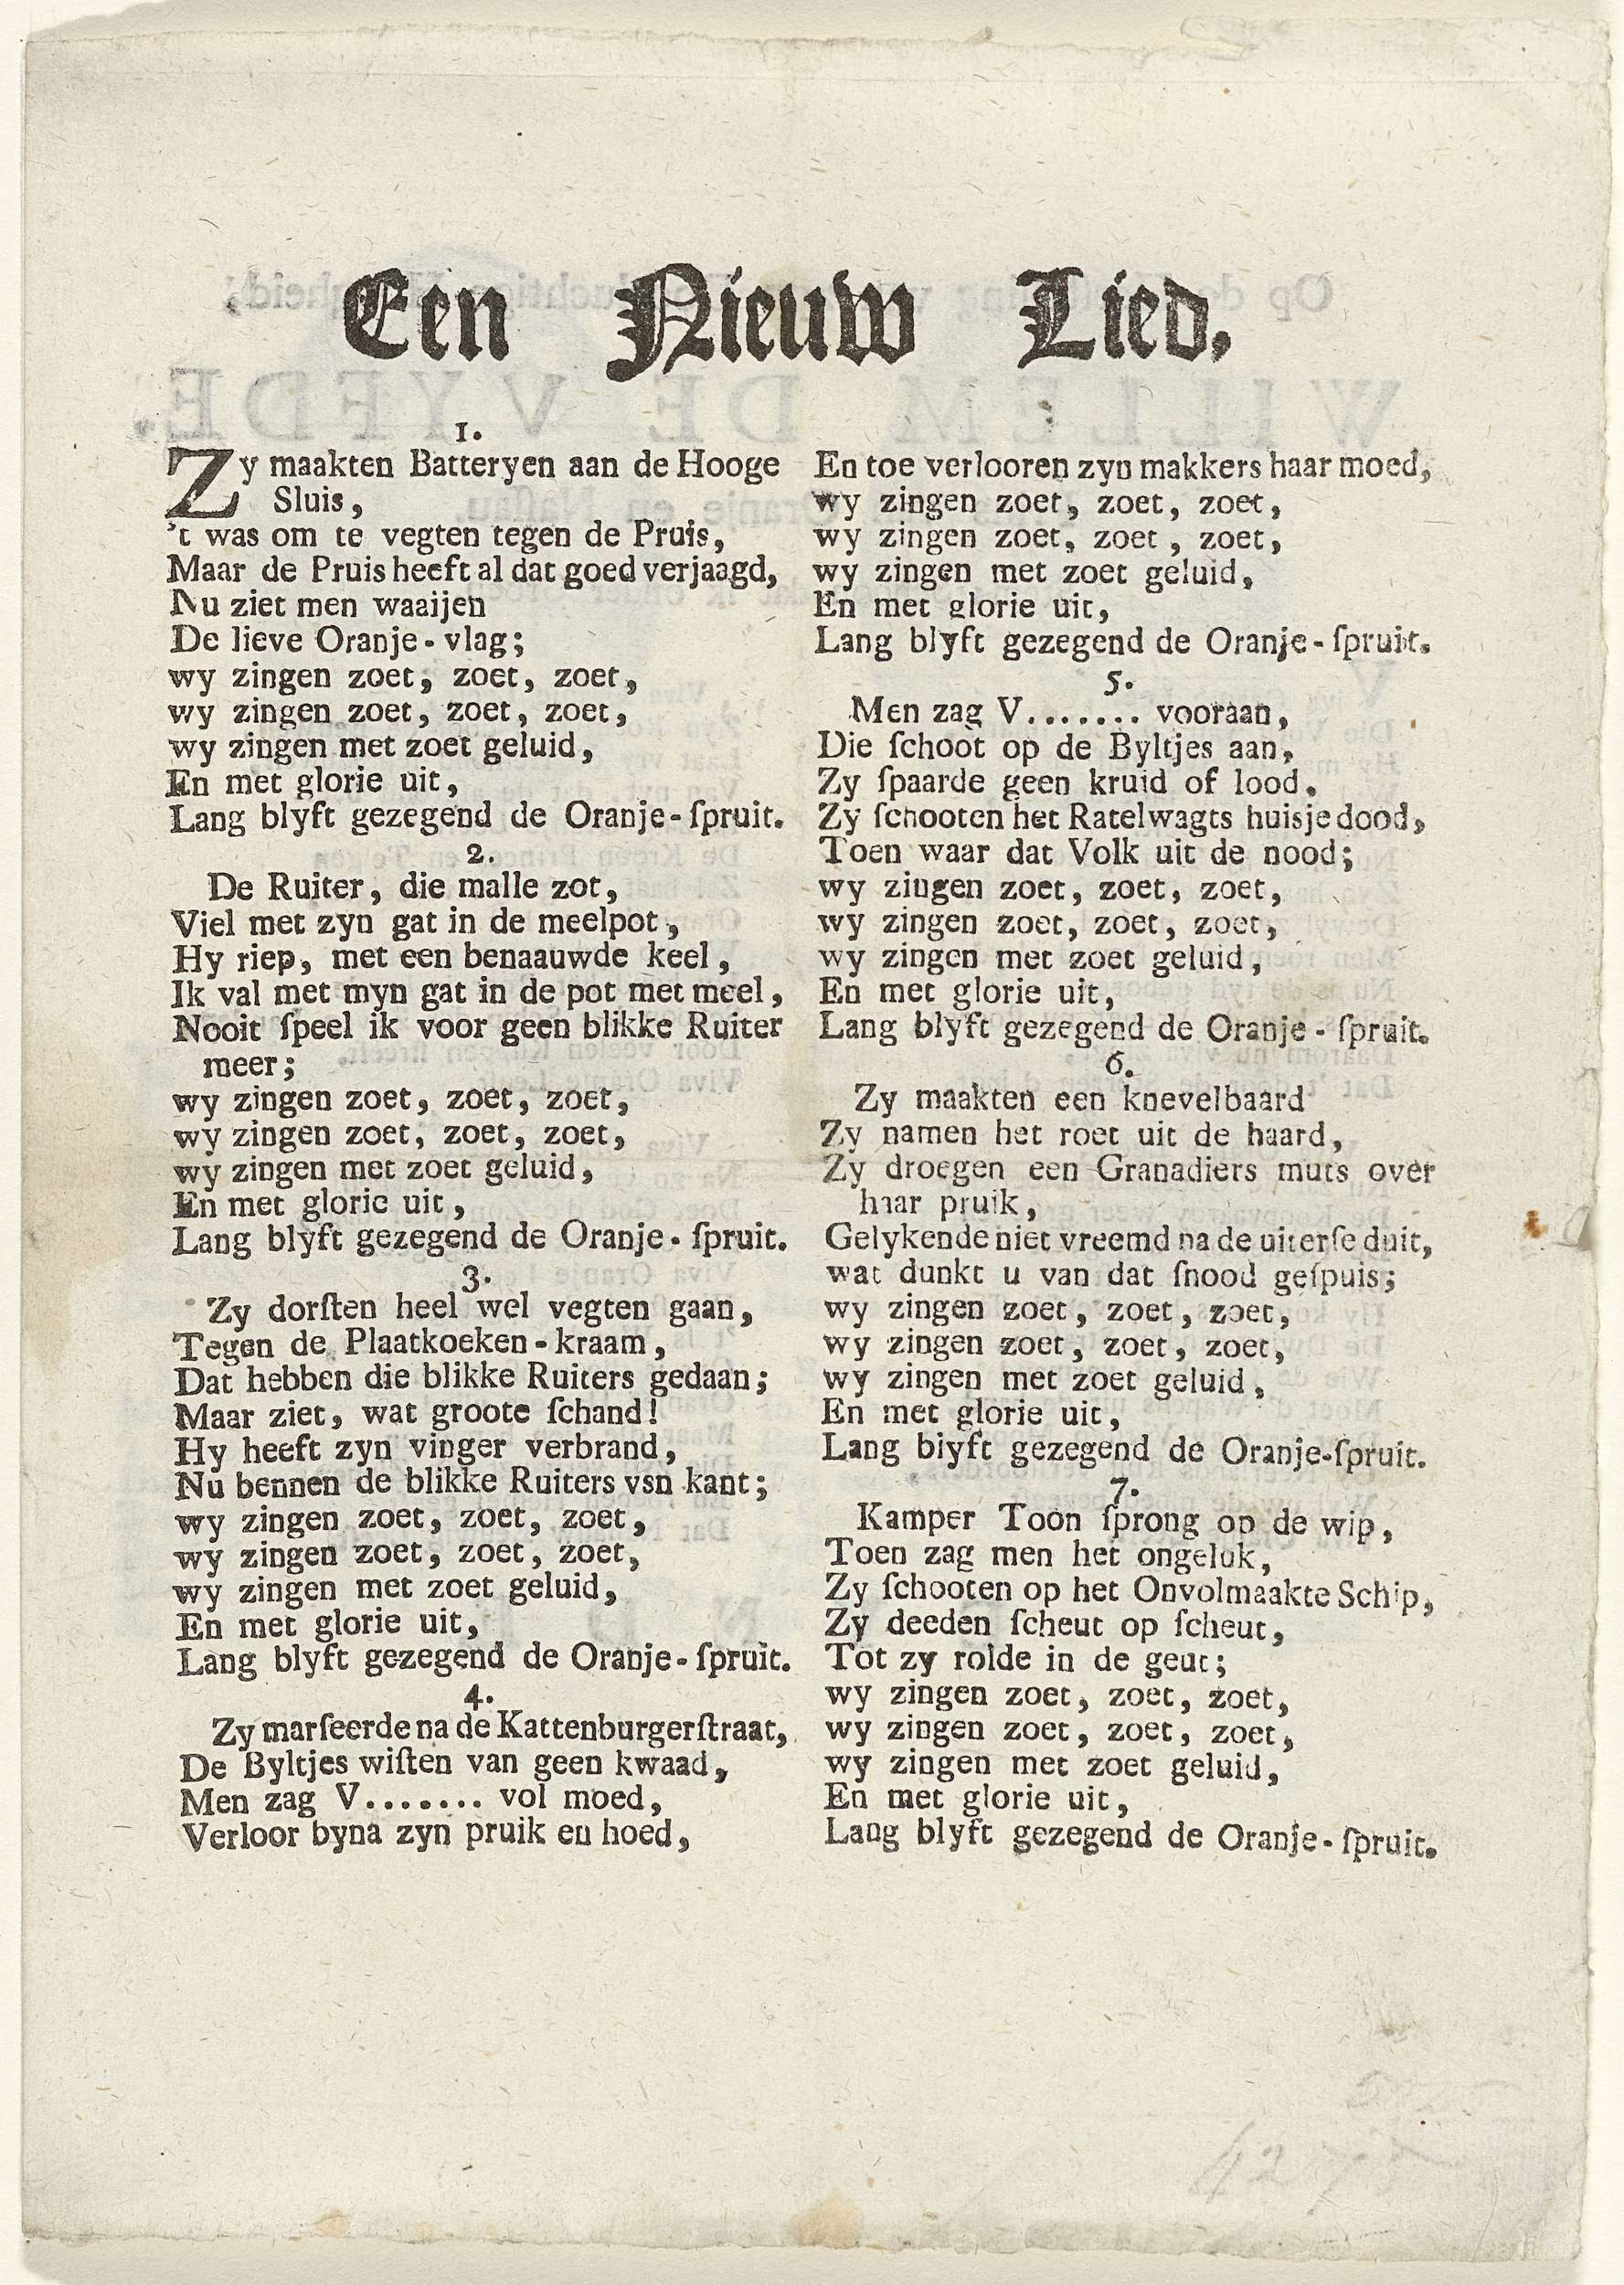 Een Nieuw Lied,
1.
Zy maakten Batteryen aan de Hooge
Sluis,
't was om te vegten tegen de Pruis,
Maar de Pruis heeft al dat goed verjaagd,
Nu ziet men waaijen
De lieve Oranje-vlag;
wy zingen zoet, zoet, zoet,
wy zingen zoet, zoet, zoet,
wy zingen met zoet geluid,
En met glorie uit,
Lang blyft gezegend de Oranje-ſpruit.
2.
De Ruiter, die malle zot,
Viel met zyn gat in de meelpot,
Hy riep, met een benaauwde keel,
Ik val met myn gat in de pot met meel,
Nooit ſpeel ik voor geen blikke Ruiter
meer;
wy zingen zoet, zoet, zoet,
wy zingen zoet, zoet, zoet,
wy zingen met zoet geluid,
En met glorie uit,
Lang blyft gezegend de Oranje-ſpruit.
3.
Zy dorſten heel wel vegten gaan,
Tegen de Plaatkoeken-kraam,
Dat hebben die blikke Ruiters gedaan;
Maar ziet, wat groote ſchand!
Hy heeft zyn vinger verbrand,
Nu bennen de blikke Ruiters vsn kant;
wy zingen zoet, zoet, zoet,
wy zingen zoet, zoet, zoet,
wy zingen met zoet geluid,
En met glorie uit,
Lang blyft gezegend de Oranje-ſpruit.
4.
Zy marſeerde na de Kattenburgerſtraat,
De Byltjes wiſten van geen kwaad,
Men zag V....... vol moed,
Verloor byna zyn pruik en hoed,
En toe verlooren zyn makkers haar moed,
wy zingen zoet, zoet, zoet,
wy zingen zoet, zoet, zoet,
wy zingen met zoet geluid,
En met glorie uit,
Lang blyft gezegend de Oranje-ſpruit.
5.
Men zag V....... vooraan,
Die ſchoot op de Byltjes aan,
Zy ſpaarde geen kruid of lood,
Zy ſchooten het Ratelwagts huisje dood,
Toen waar dat Volk uit de nood;
wy zingen zoet, zoet, zoet,
wy zingen zoet, zoet, zoet,
wy zingen met zoet geluid,
En met glorie uit,
Lang blyft gezegend de Oranje-ſpruit.
6.
Zy maakten een knevelbaard
Zy namen het roet uit de haard,
Zy droegen een Granadiers muts over
haar pruik,
Gelykende niet vreemd na de uiterſe duit,
wat dunkt u van dat ſnood geſpuis;
wy zingen zoet, zoet, zoet,
wy zingen zoet, zoet, zoet,
wy zingen met zoet geluid,
En met glorie uit,
Lang blyft gezegend de Oranje-ſpruit.
7.
Kamper Toon ſprong op de wip,
Toen zag men het ongeluk,
Zy ſchooten op het Onvolmaakte Schip,
Zy deeden ſcheut op ſcheut,
Tot zy rolde in de geut;
wy zingen zoet, zoet, zoet,
wy zingen zoet, zoet, zoet,
wy zingen met zoet geluid,
En met glorie uit,
Lang blyft gezegend de Oranje-ſpruit.